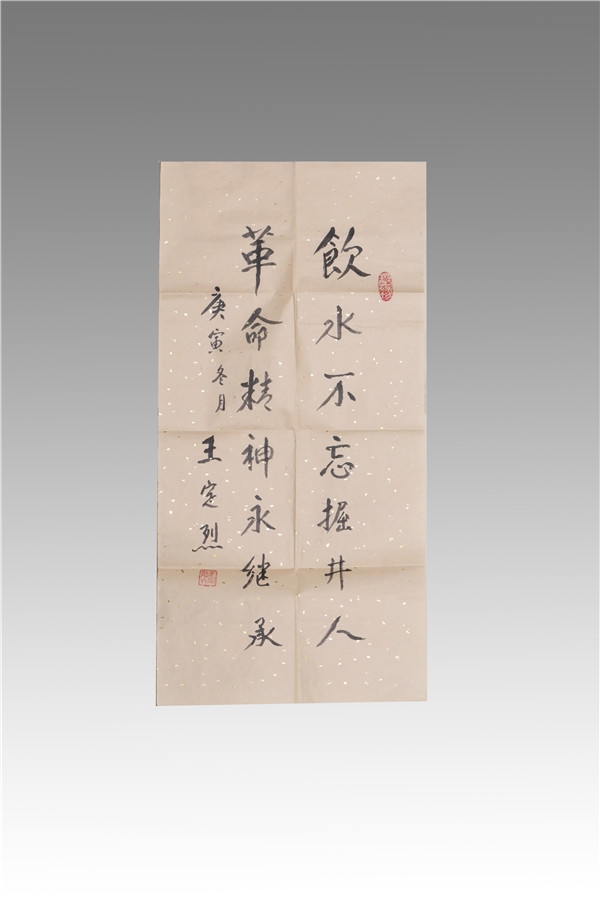 飲水不忘掘井人
革命精神永继承
庚寅冬月
王定烈